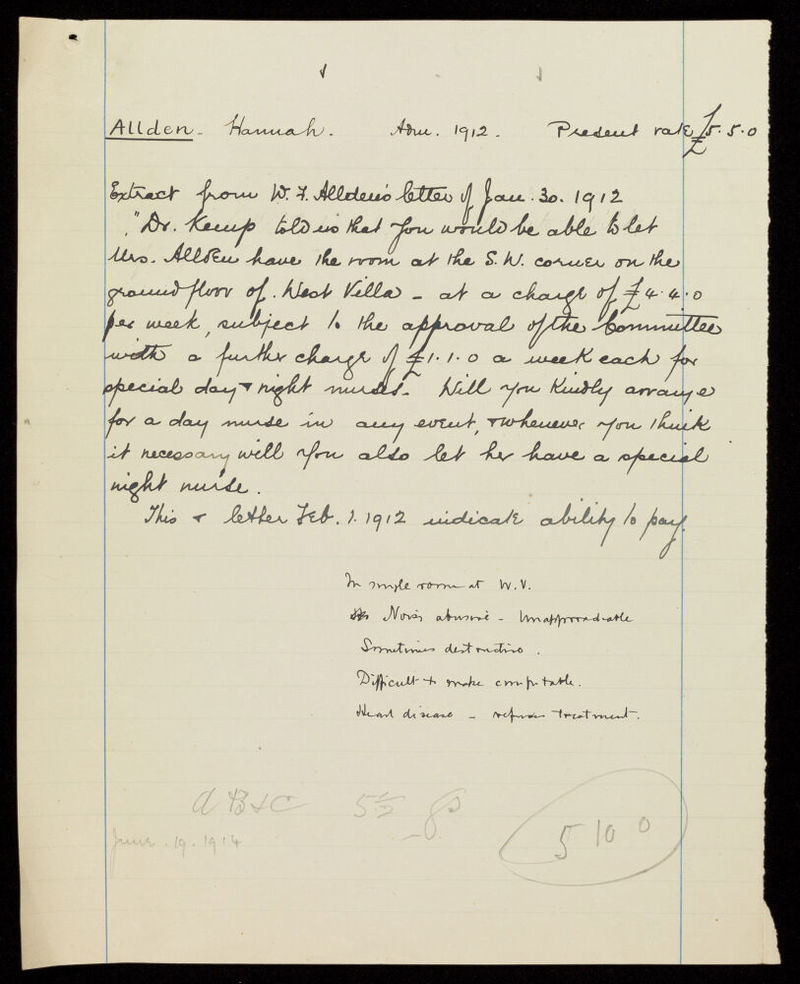 Allden - Hannah. Adm. 1912. Present rate £5.5.0
Extract from W. F. Allden's letter of Jan. 30. 1912
"Dr. Kemp told us that you would be able to let
Mrs. Allden have the room at the S.W. corner on the
ground floor of. West Villa - at a charge of £4.4.0
per week, subject to the approval of the Committee
with a further charge of £1.1.0 a week each for
special day & night nurses. Will you kindly arrange
for a day nurse in any event, & whenever you think
it necessary will you also let her have a special
night nurse.
This & letter Feb. 1. 1912 indicate ability to pay.
In single room at W.V.
Noisy abusive - Unapproachable
Sometimes destructive.
Difficult to make comfortable.
Heart disease - refuses treatment.
5½ gs
5 10 0
June. 19. 1914